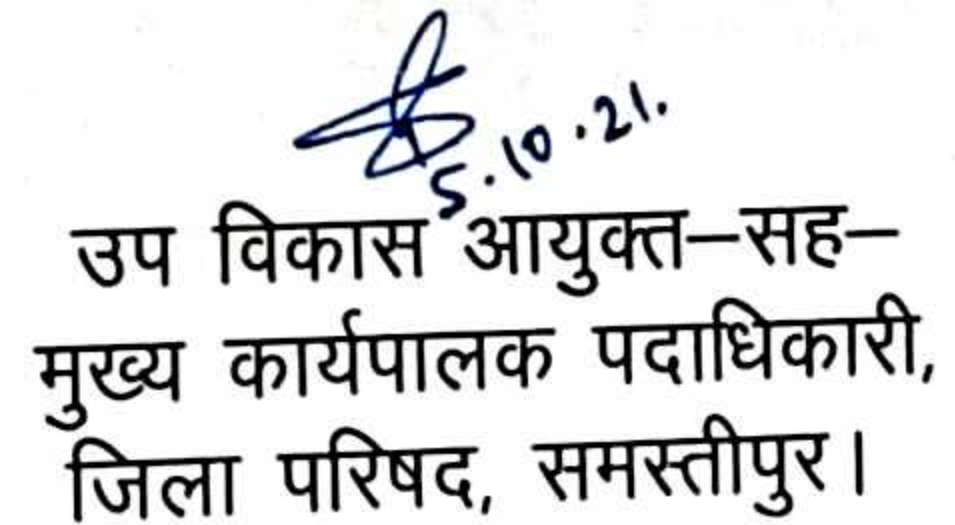 5.10.21.
उप विकास आयुक्त–सह–
मुख्य कार्यपालक पदाधिकारी,
जिला परिषद, समस्तीपुर।